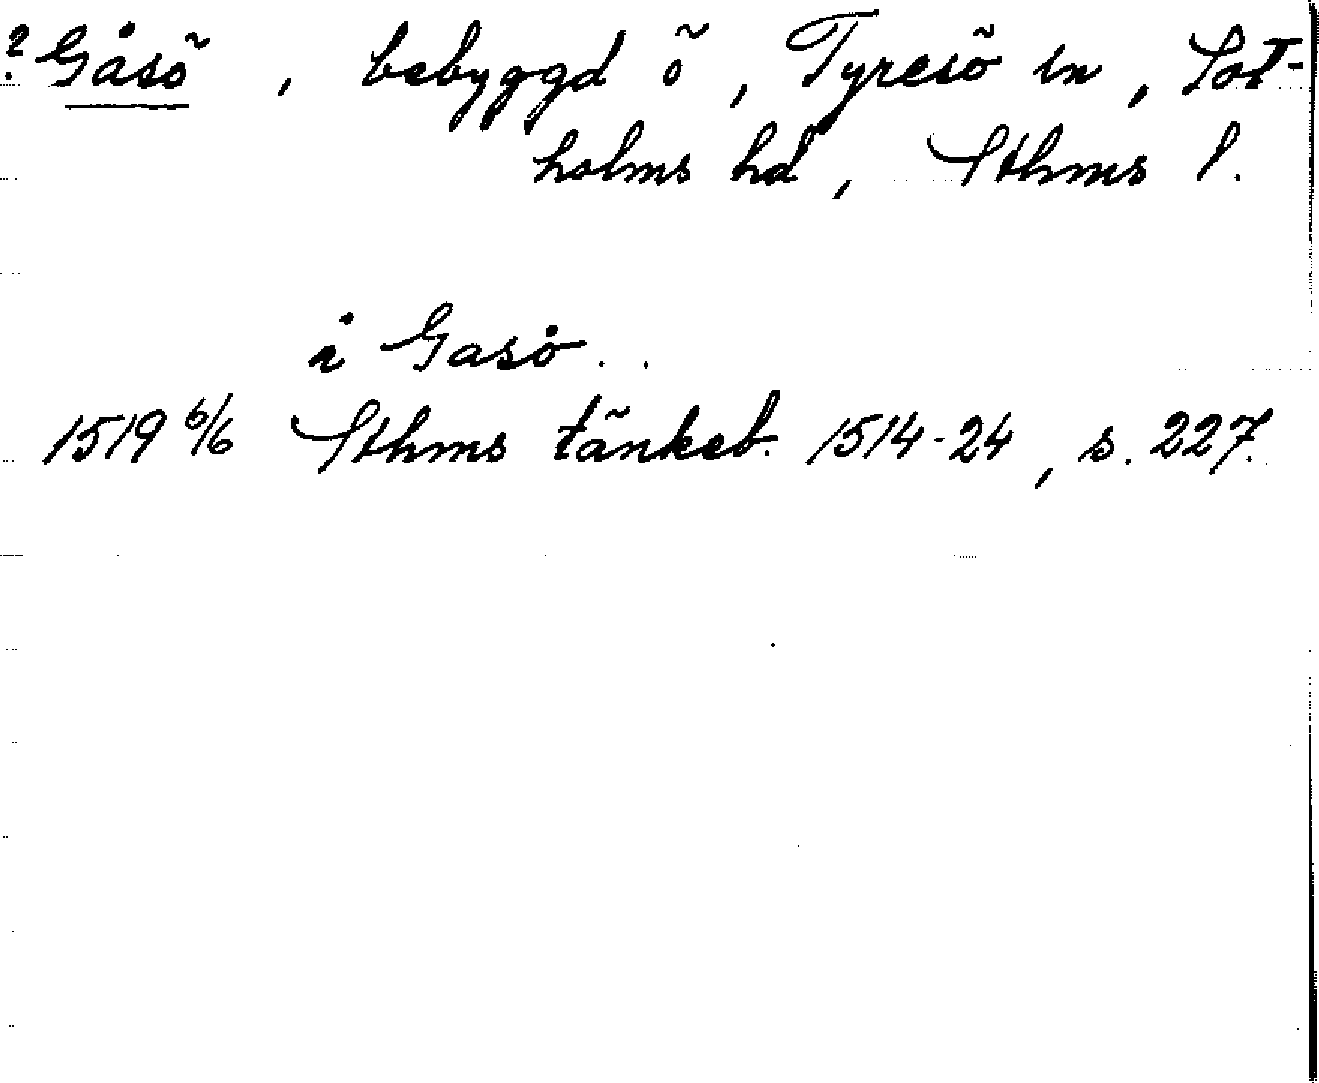 ? Gåsö, bebyggd ö, Tyresö sn, Sot-
holms hd, Sthms l.
i Gasö..
1519 6/6 Sthms tänkeb. 1514-24, s. 227.